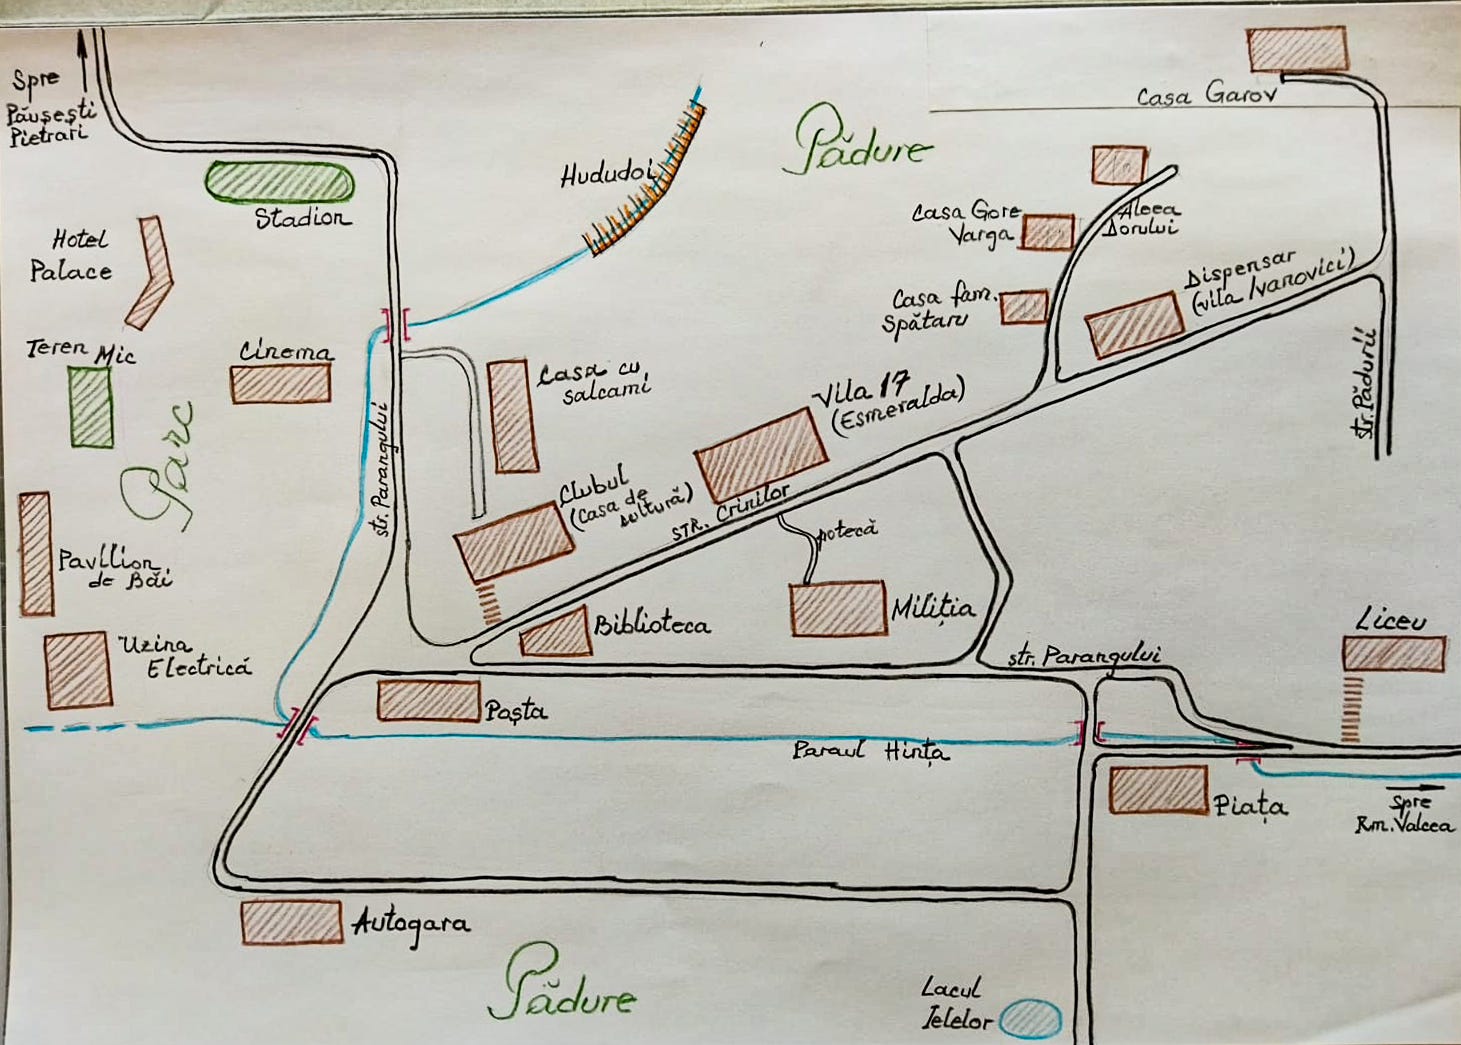 Spre
Păușești
Pietrari
Stadion
Hotel
Palace
Teren Mic
Cinema
Parc
Pavilion
de Băi
Uzina
Electrică
str. Parangului
Hududoi
Pădure
Casa Garov
Casa Gore
Varga
Aleea
Dorului
Casa fam.
Spătaru
Dispensar
(vila Ivanovici)
str. Pădurii
Casa cu
salcami
Vila 17
(Esmeralda)
Clubul
(Casa de
cultură)
STR. Crinilor
potecă
Biblioteca
Miliția
str. Parangului
Liceu
Poșta
Paraul Hința
Piața
Spre
Rm. Valcea
Autogara
Pădure
Lacul
Ielelor